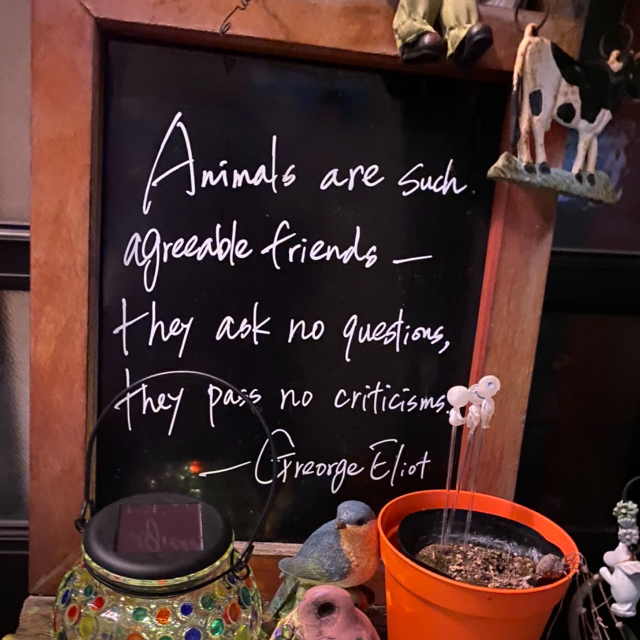 Animals are such
agreeable friends —
they ask no questions,
they pass no criticisms.
— Greorge Eliot